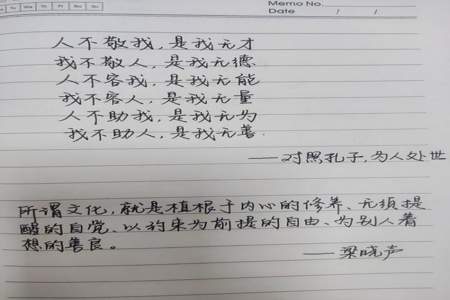 Memo No.
Mo Tu We Th Fr Sa Su
Date / /
人不敬我,是我无才
我不敬人,是我无德
人不容我,是我无能
我不容人,是我无量
人不助我,是我无为
我不助人,是我无善.
——对照孔子,为人处世
所谓文化,就是植根于内心的修养、无须提
醒的自觉、以约束为前提的自由、为别人着
想的善良。
——梁晓声